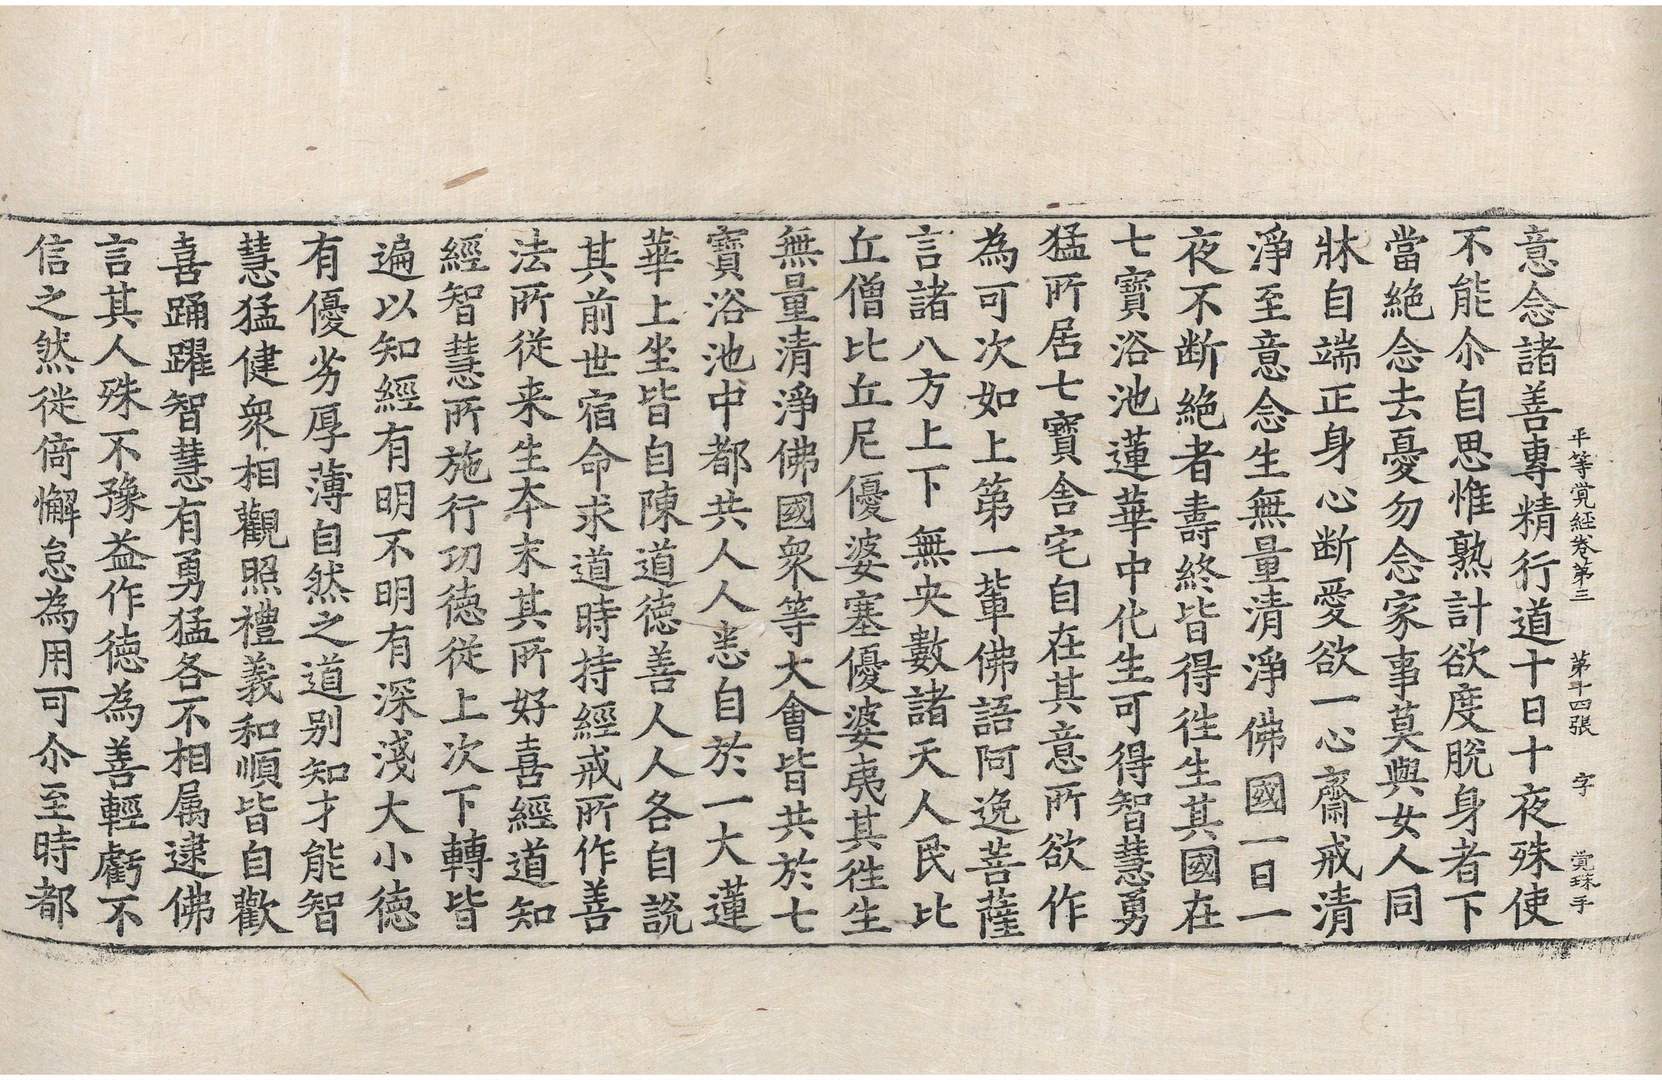 平等覺経卷第三 第十四張 字 覺珠手
意念諸善專精行道十日十夜殊使
不能尒自思惟熟計欲度脫身者下
當絕念去憂勿念家事莫與女人同
牀自端正身心断愛欲一心齋戒清
淨至意念生無量清淨佛國一日一
夜不断絕者壽終皆得往生其國在
七寶浴池蓮華中化生可得智慧勇
猛所居七寶舍宅自在其意所欲作
為可次如上第一輩佛語阿逸菩薩
言諸八方上下無央數諸天人民比
丘僧比丘尼優婆塞優婆夷其往生
無量清淨佛國衆等大會皆共於七
寶浴池中都共人人悉自於一大蓮
華上坐皆自陳道德善人人各自說
其前世宿命求道時持經戒所作善
法所從来生本末其所好喜經道知
經智慧所施行功德從上次下轉皆
遍以知經有明不明有深淺大小德
有優劣厚薄自然之道別知才能智
慧猛健衆相觀照禮義和順皆自歡
喜踊躍智慧有勇猛各不相属逮佛
言其人殊不豫益作德為善輕戲不
信之然徙倚懈怠為用可尒至時都